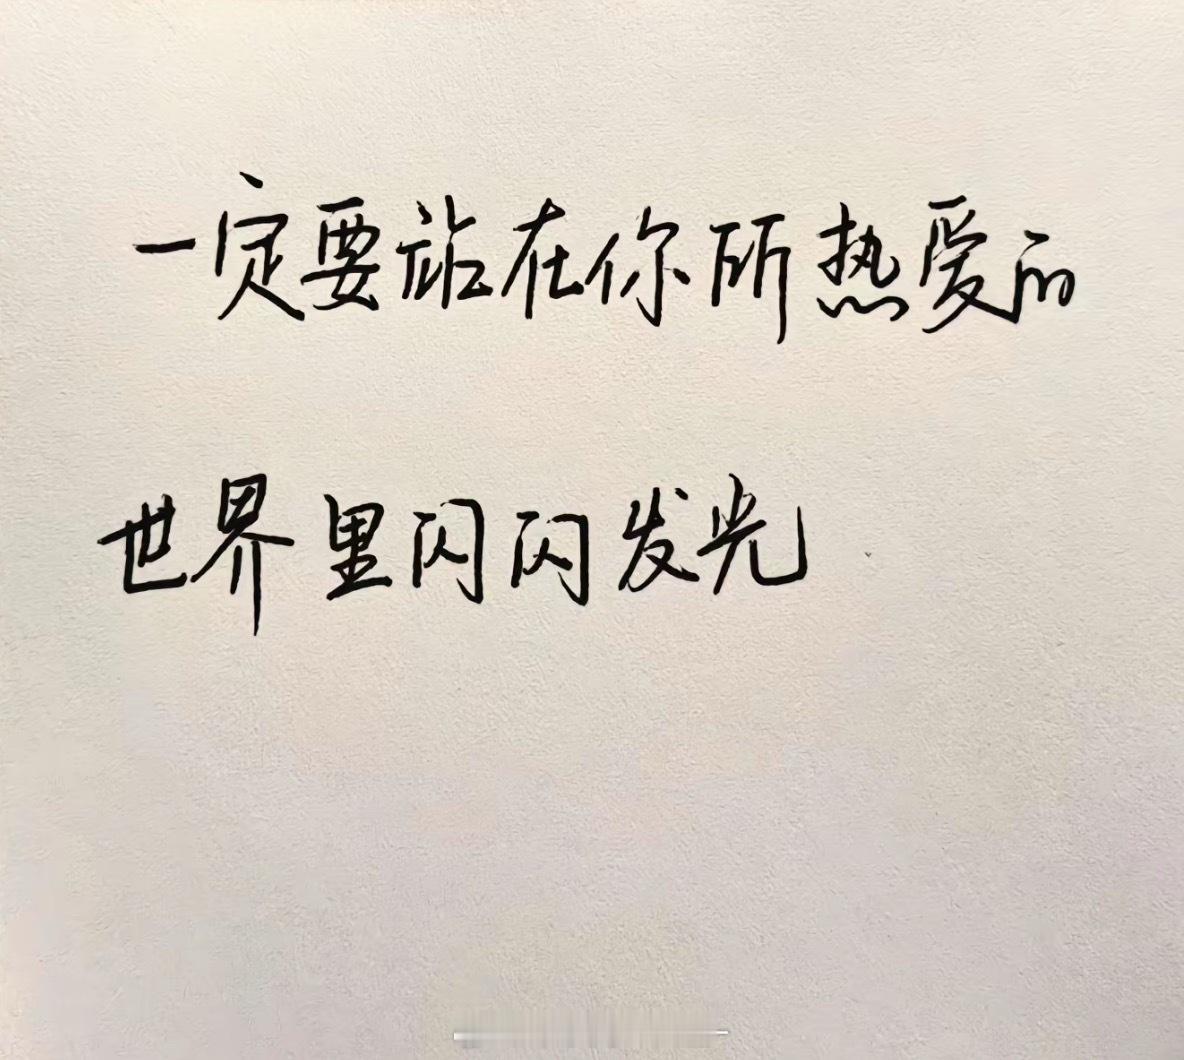 一定要站在你所热爱的
世界里闪闪发光